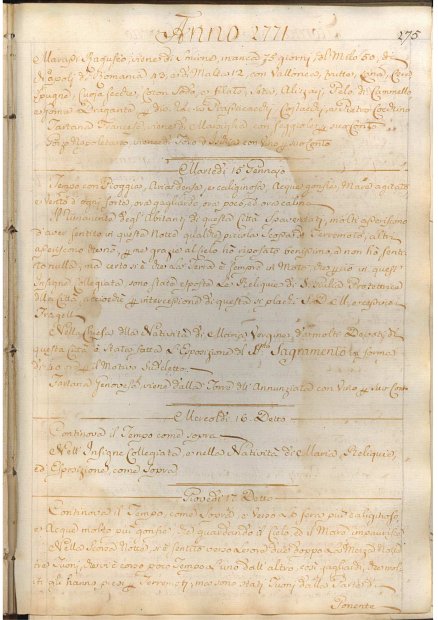 Anno 1771
275
Marasi Raguseo, viene di Smirne, manca 75 giorni, dal Milo 50, di
Napoli di Romania 43, e da Malta 12, con Vallonea, frutto, Lana, Cera
Spugne, Cuoja secche, Coton Sodo, e filato, Seta, Alizari, Pelo di Camello
e Gomma Draganta
Tartana Francese, viene di Marsiglia con e suo Conto
Napoletano, viene di con Vino suo Conto
Martedì 15 Gennajo
Tempo con Pioggia, Aria densa, e caliginosa, Acque gonfie, Mare agitato
e Vento d'ogni sorte, ora gagliardo, ora poco, ed ora calma
Abitanti di questa Città spaventati, molti asseriscono
d'aver sentito in questa Notte qualche piccola scossa di Terremoto, altri
asseriscono di no, per me grazie al Cielo hò riposato benissimo, e non hò senti-
to nulla, ma certo si è che la Terra è sempre in Moto, in quest'
Insigne Collegiata sono state esposte le Reliquie di S. Giulia Protettrice
della Città, acciochè per intercessione di questa si plachi S. D. M.
Flagelli
Nella Chiesa della Natività di Maria Vergine, da molti Devoti di
questa Città è stata fatta l'Esposizione del SS.mo Sagramento in forma
di 40 per il Motivo Sudetto
Tartana Genovese, viene dalla Torre dell'Annunziata con Vino suo Conto
Mercoledì 16 Detto
Continova il Tempo come sopra
Nell'Insigne Collegiata, e nella Natività di Maria, Reliquie,
ed Esposizione come sopra
Giovedì 17 Detto
Continova il Tempo, come sopra, e verso la sera più caliginoso,
e Acque molto più gonfie, che guardando il Cielo, ed il Mare impauriva
Nella scorsa Notte, si è sentito verso a ore due doppo la Mezza Notte
tre Tuoni, con poco Tempo l'uno dall'altro, così gagliardi, che mol-
ti gli hanno presi per Terremoti, ma sono stati Tuoni dalla Parte di
Ponente